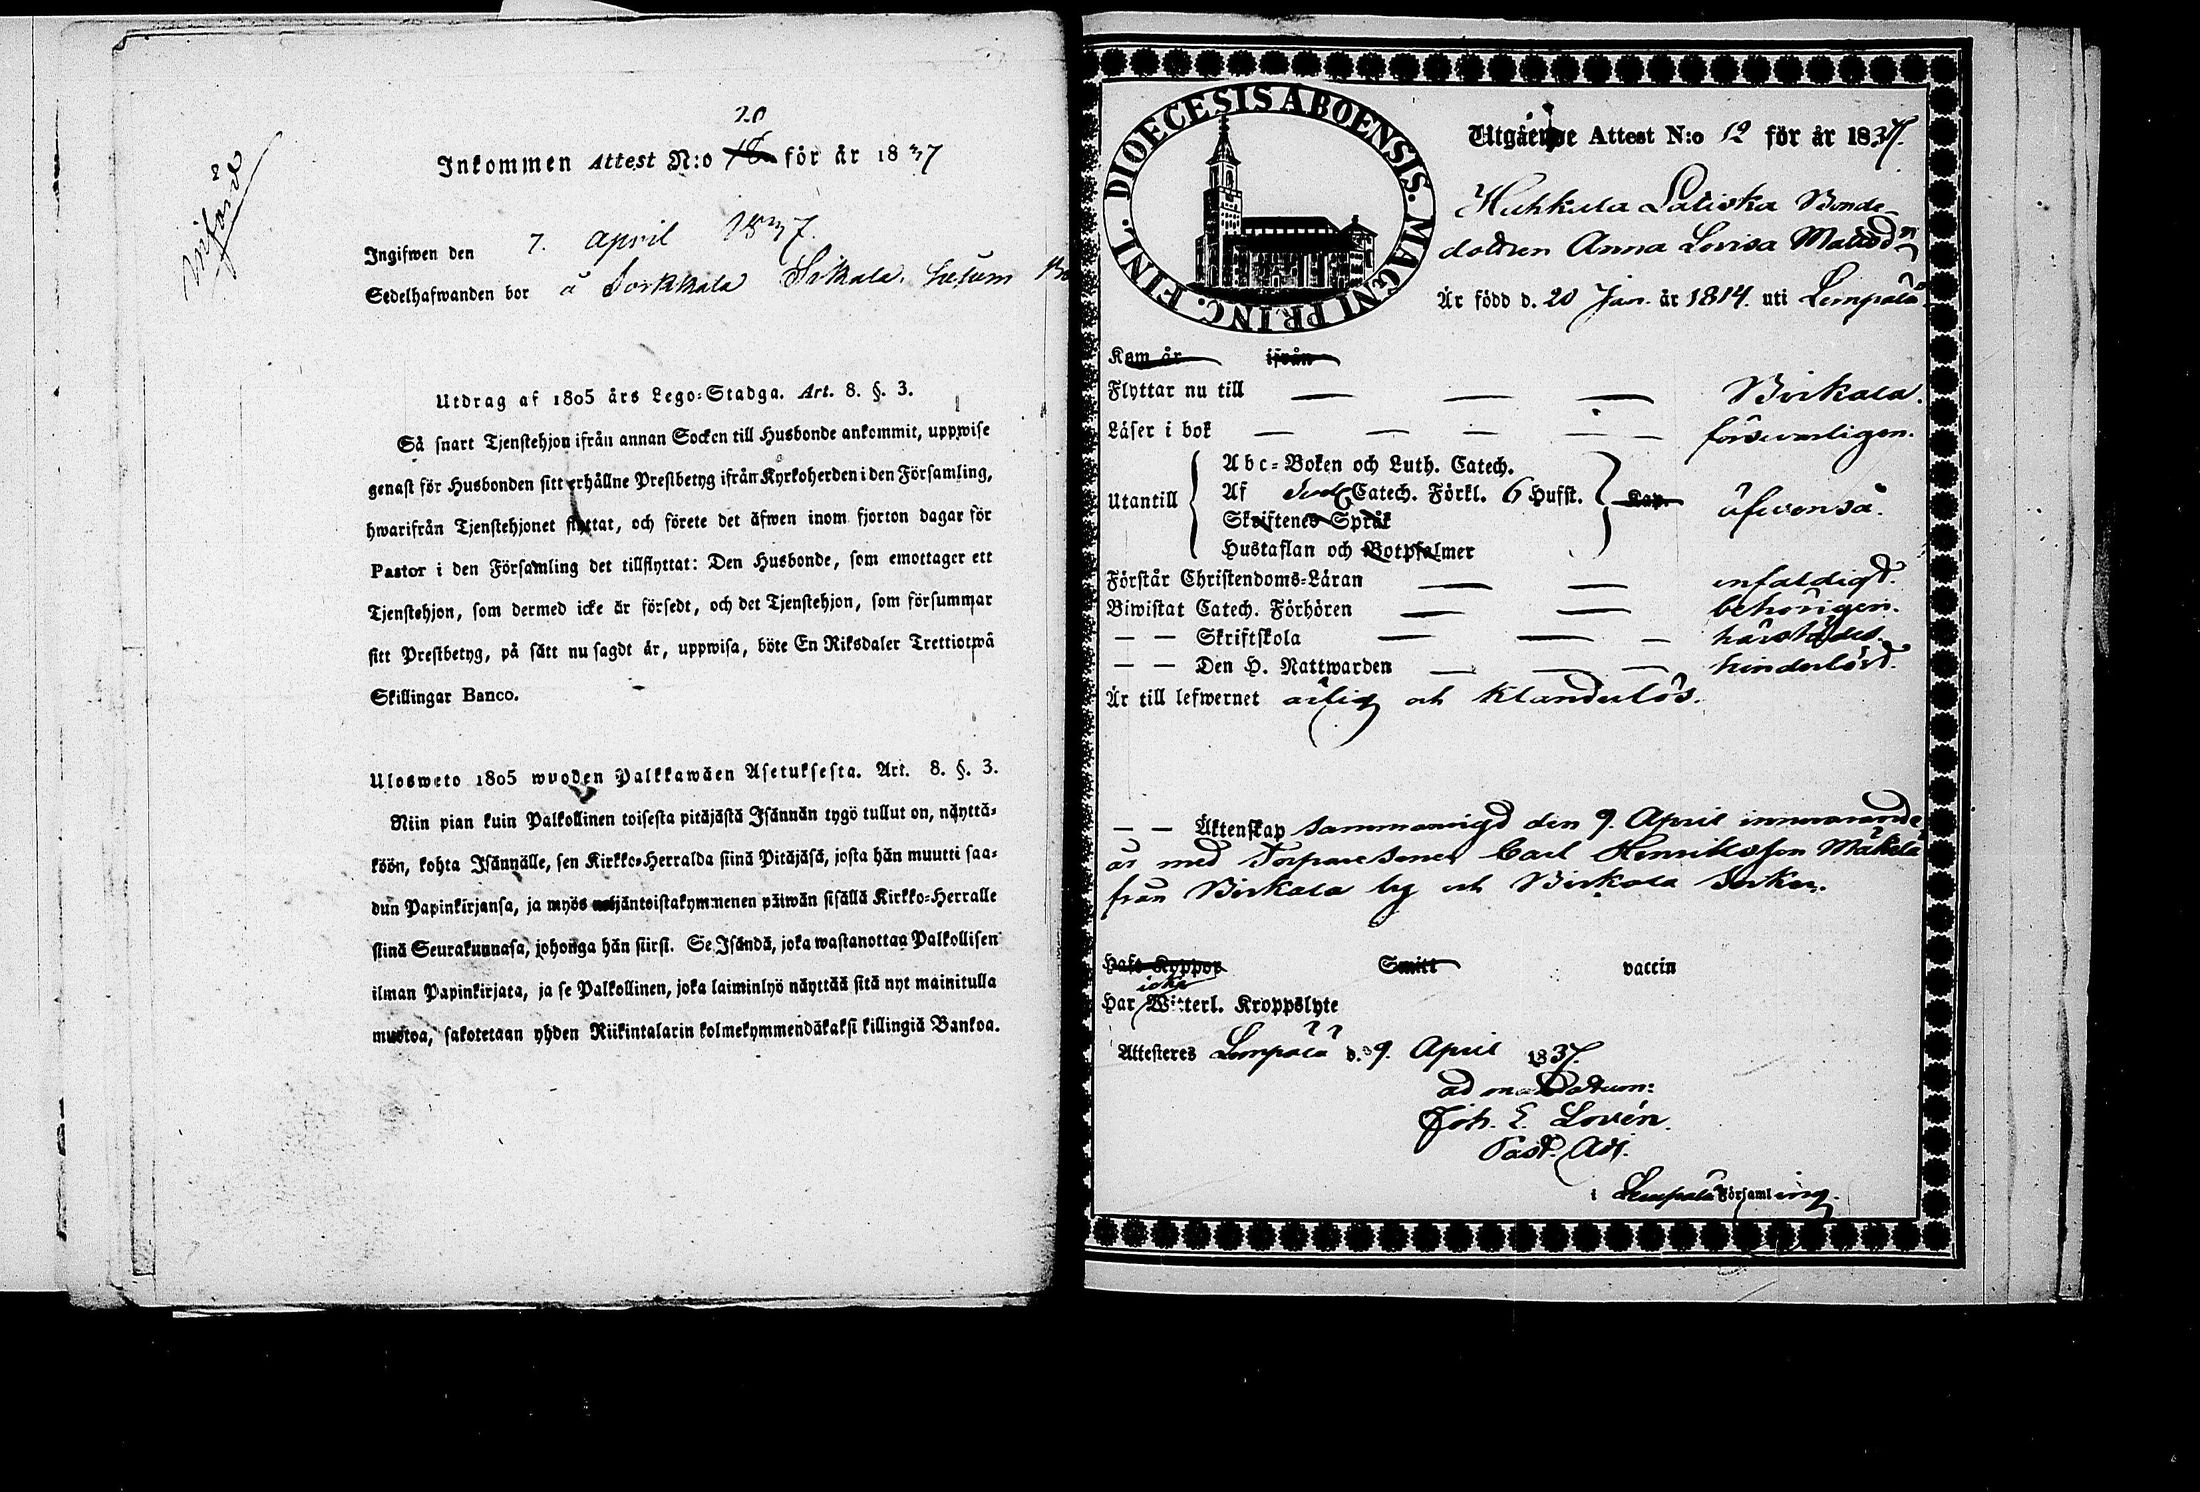 införd
20
Inkommen Attest N:o 18 för år 1837
Ingifwen den 7. April 1837.
Sedelhafwanden bor å Sorkkala
Utdrag af 1805 års Lego-Stadga. Art. 8. §. 3.
Så snart Tjenstehjon ifrån annan Socken till Husbonde ankommit, uppwise
genast för Husbonden sitt erhållne Prestbetyg ifrån Kyrkoherden i den Församling,
hwarifrån Tjenstehjonet flyttat, och förete det äfwen inom fjorton dagar för
Pastor i den Församling det tillflyttat: Den Husbonde, som emottager ett
Tjenstehjon, som dermed icke är försedt, och det Tjenstehjon, som försummar
sitt Prestbetyg, på sätt nu sagdt är, uppwisa, böte En Riksdaler Trettiotwå
Skillingar Banco.
Ulosweto 1805 wuoden Palkkawäen Asetuksesta. Art. 8. §. 3.
Niin pian kuin Palkollinen toisesta pitäjästä Isännän tygö tullut on, näyttä-
köön, kohta Isännälle, sen Kirkko-Herralda siinä Pitäjäsä, josta hän muutti saa-
dun Papinkirjansa, ja myös neljäntoistakymmenen päiwän sisällä Kirkko-Herralle
siinä Seurakunnasa, johonga hän siirsi. Se Isändä, joka wastanottaa Palkollisen
ilman Papinkirjata, ja se Palkollinen, joka laiminlyö näyttää sitä nyt mainitulla
muotoa, sakotetaan yhden Riikintalarin kolmekymmendäkaksi killingiä Bankoa.
DIOECESIS ABOENSIS. MAGNI PRINC. FINL.
Utgående Attest N:o 12 för år 1837.
Huhkula Latiska Bonde-
dottren Anna Lovisa Matsdr
Är född d. 20 Jan. år 1814. uti Lempälä
Kom år ifrån
Flyttar nu till — — — Birkala.
Läser i bok — — — — — försvarligen.
Utantill
Abc-Boken och Luth. Catech.
Af Sved. Catech. Förkl. 6 Hufst. Kap. äfvenså.
Skriftenes Språk
Hustaflan och Botpsalmer
Förstår Christendoms-Läran — — enfaldigt.
Biwistat Catech. Förhören — — behörigen.
— — Skriftskola — — — härstädes.
— — Den H. Nattwarden — — — hinderlöst.
Är till lefwernet ärlig och klanderlös.
— — Äktenskap sammanvigd den 9. April innevarande
år med Torparesonen Carl Henriksson Mäkelä
från Birkala by och Birkala Socken.
Haft Koppor Smitt vaccin
icke
Har Witterl. Kroppslyte
Attesteres Lempälä d. 9. April 1837.
ad mandatum:
Joh. E. Lovén.
Past. Adj.
i Lempälä Församling.